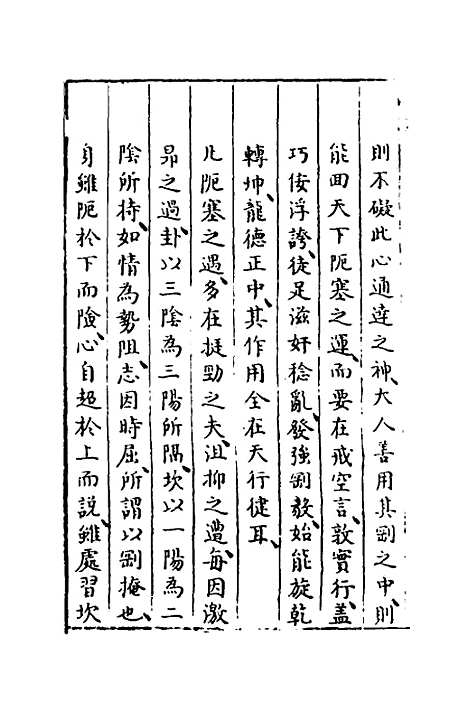 則不礙此心通達之神大人善用其剛之中則
能回天下阨塞之運而要在戒空言敦實行蓋
巧佞浮誇徒足滋奸稔亂發強剛毅始能旋乾
轉坤龍德正中其作用全在天行健耳
凡阨塞之遇多在挺勁之夫沮抑之遭每因激
昻之過卦以三陰為三陽所隔坎以一陽為二
陰所持如情為勢阻志因時屈所謂以剛掩也
身雖阨於下而險心自超於上而說雖處習坎